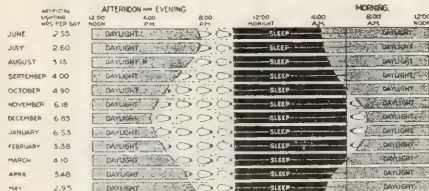 ARTIFICIAL LIGHTING HRS PER DAY
AFTERNOON AND EVENING
MORNING
12:00 NOON 4:00 P.M. 8:00 P.M. 12:00 MIDNIGHT 4:00 A.M. 8:00 A.M. 12:00 NOON
JUNE 2.55 DAYLIGHT SLEEP DAYLIGHT
JULY 2.60 DAYLIGHT SLEEP DAYLIGHT
AUGUST 3.15 DAYLIGHT SLEEP DAYLIGHT
SEPTEMBER 4.00 DAYLIGHT SLEEP DAYLIGHT
OCTOBER 4.90 DAYLIGHT SLEEP DAYLIGHT
NOVEMBER 6.18 DAYLIGHT SLEEP DAYLIGHT
DECEMBER 6.85 DAYLIGHT SLEEP DAYLIGHT
JANUARY 6.53 DAYLIGHT SLEEP DAYLIGHT
FEBRUARY 5.38 DAYLIGHT SLEEP DAYLIGHT
MARCH 4.10 DAYLIGHT SLEEP DAYLIGHT
APRIL 3.48 DAYLIGHT SLEEP DAYLIGHT
MAY 2.95 DAYLIGHT SLEEP DAYLIGHT